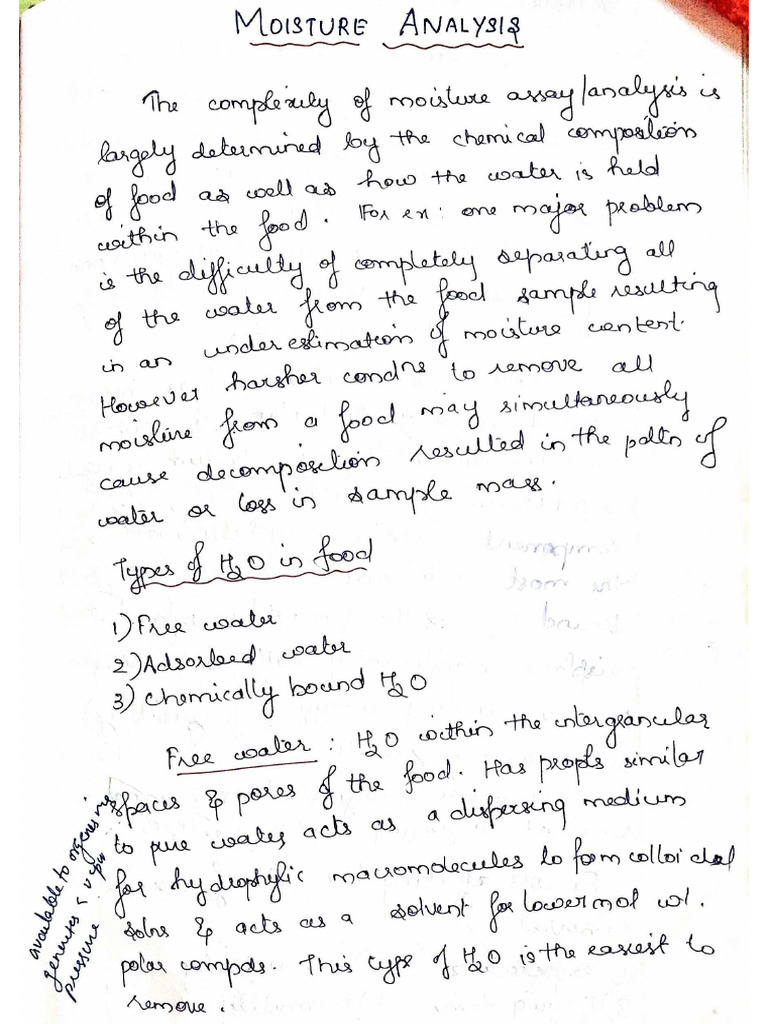 MOISTURE ANALYSIS
The complexity of moisture assay/analysis is
largely determined by the chemical composition
of food as well as how the water is held
within the food. For ex: one major problem
is the difficulty of completely separating all
of the water from the food sample resulting
in an underestimation of moisture content.
However harsher condns to remove all
moisture from a food may simultaneously
cause decomposition resulted in the pdtn of
water or loss in sample mass.
Types of H2O in food
1) Free water
2) Adsorbed water
3) Chemically bound H2O
Free water : H2O within the intergranular
spaces & pores of the food. Has propts similar
to pure water, acts as a dispersing medium
for hydrophylic macromolecules to form colloidal
solns & acts as a solvent for lower mol wt.
polar compds. This type of H2O is the easiest to
remove.
available to organisms
generates vapu
pressure